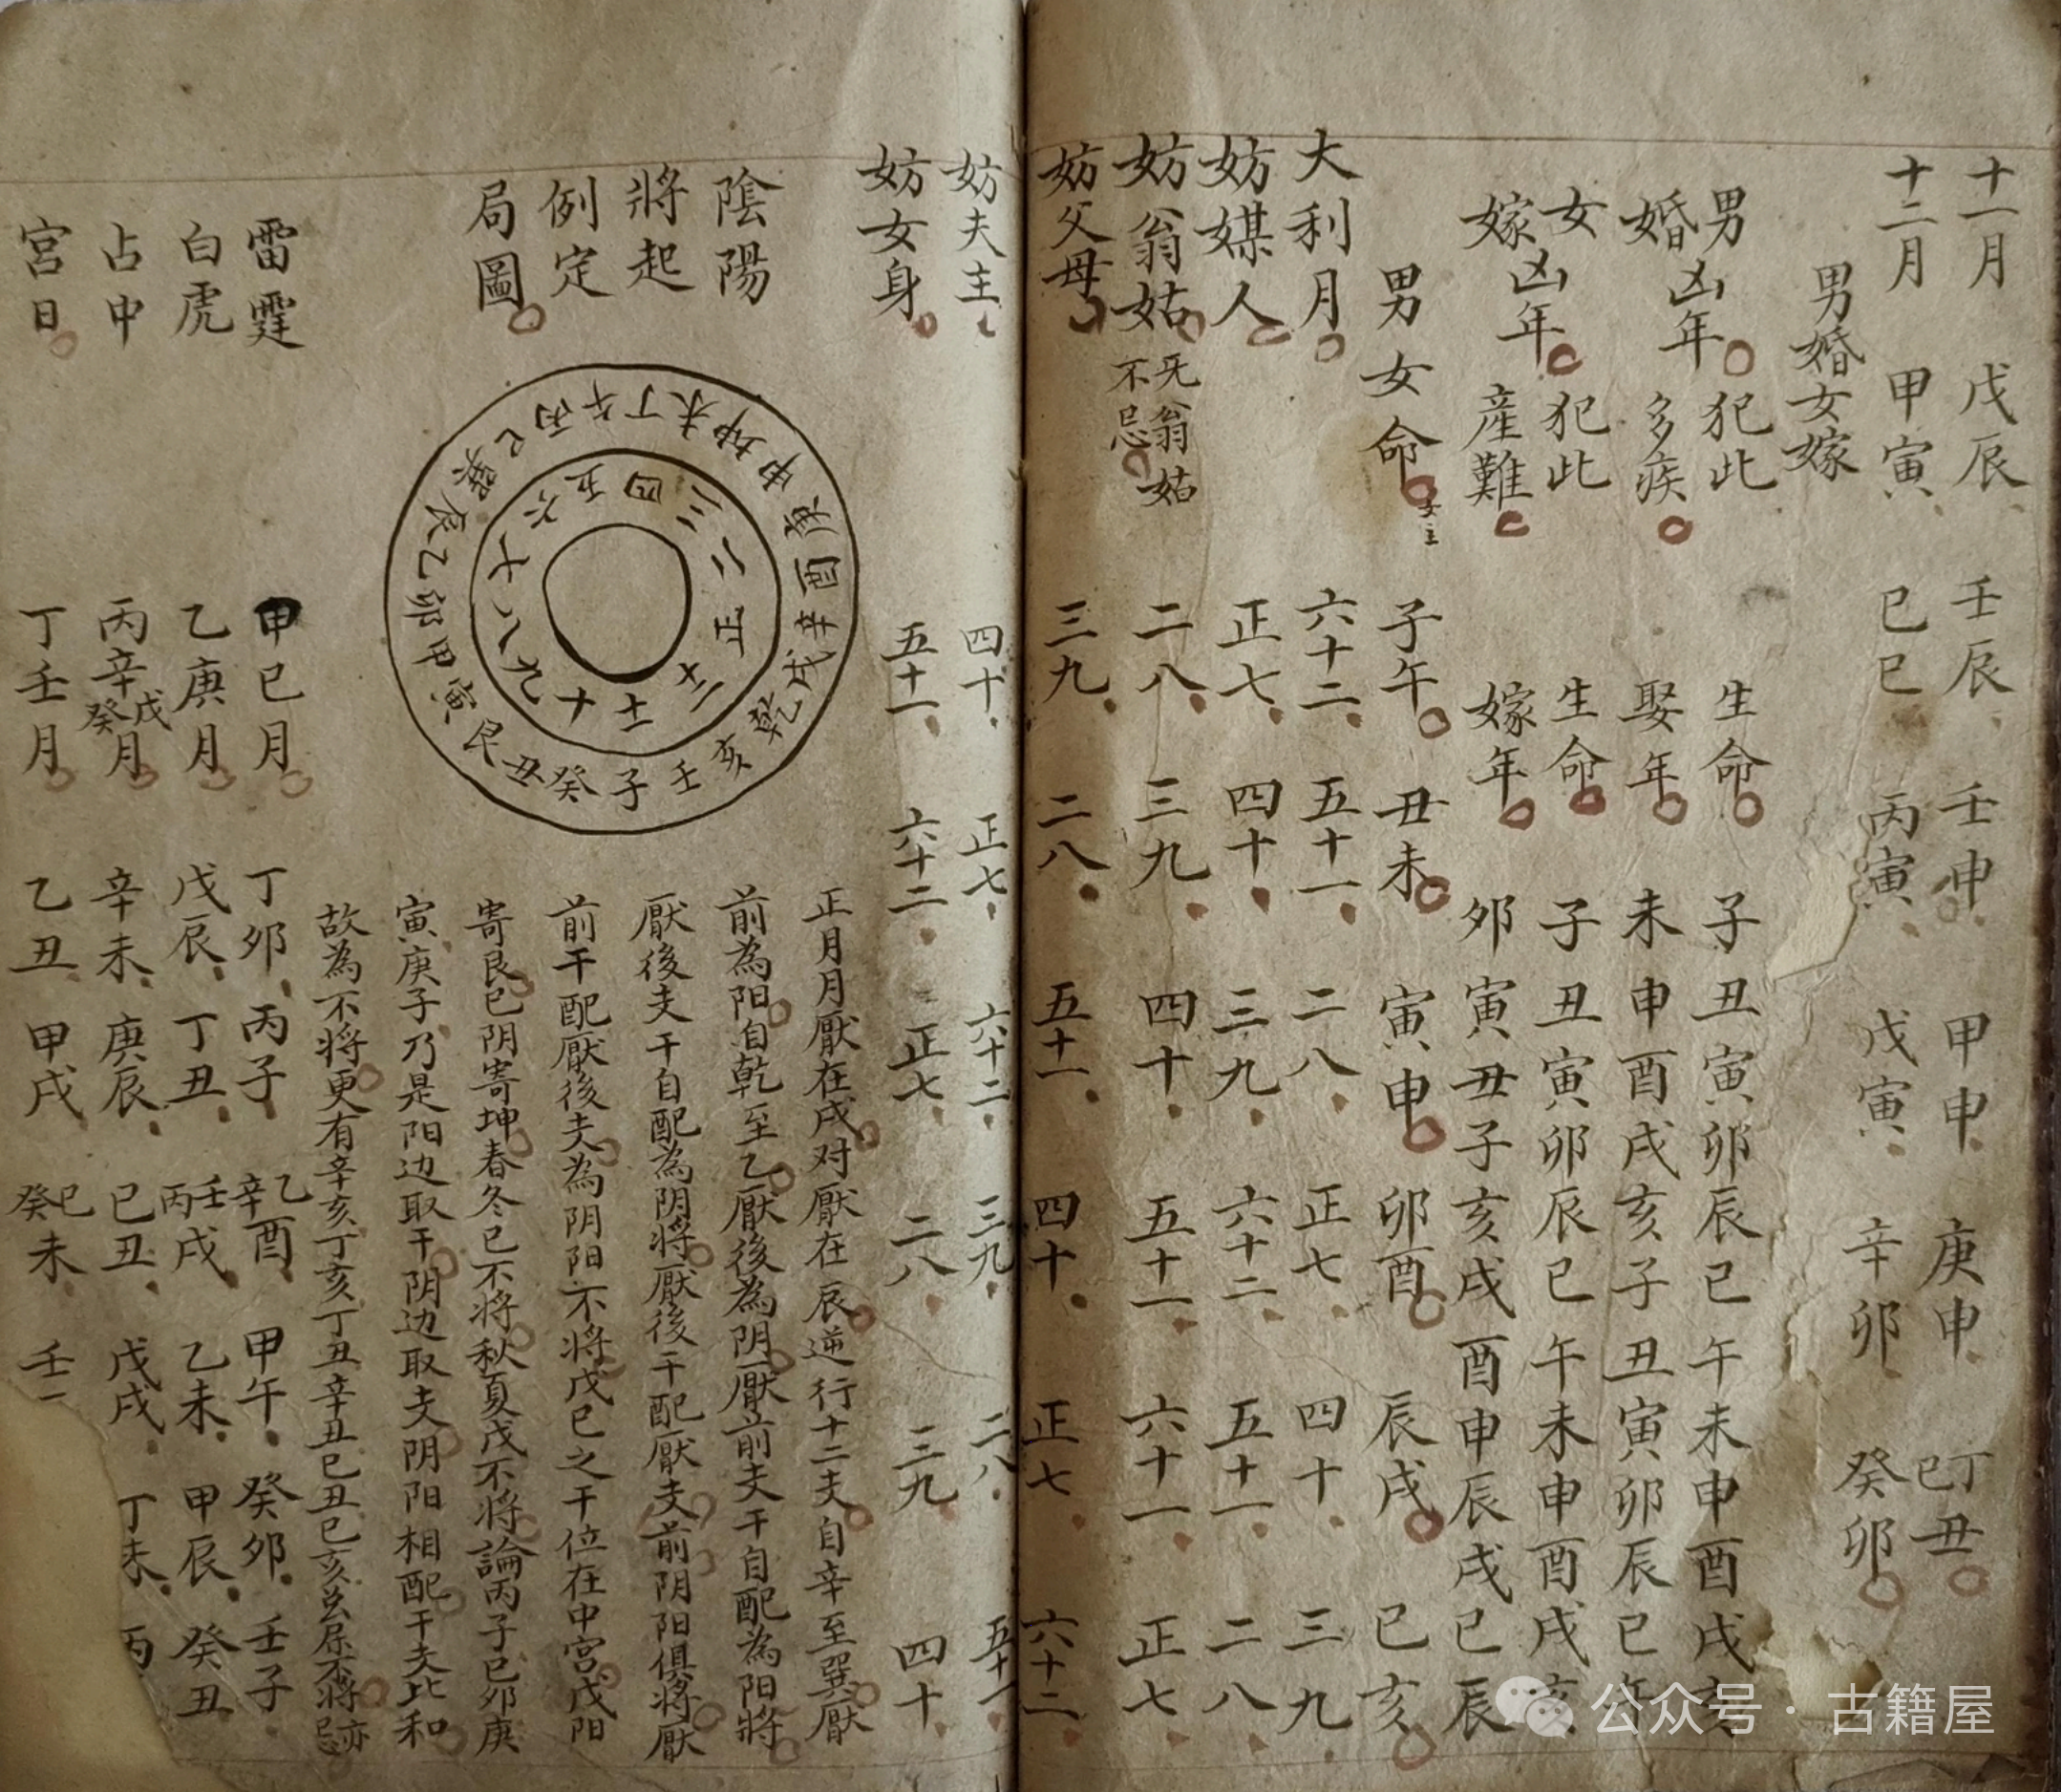 十一月 戊辰 壬辰 壬申 甲申 庚申 丁丑 己
十二月 甲寅 己巳 丙寅 戊寅 辛卯 癸卯
男婚女嫁
男婚凶年 犯此多疾 生命 子丑寅卯辰巳午未申酉戌亥
娶年 未申酉戌亥子丑寅卯辰巳午
女嫁凶年 犯此產難 生命 子丑寅卯辰巳午未申酉戌亥
嫁年 卯寅丑子亥戌酉申辰戌巳辰
男女命 子午 丑未 寅申 卯酉 辰戌 巳亥
大利月 六十二 五十一 二八 正七 四十 三九
妨媒人 正七 四十 三九 六十二 五十一 二八
妨翁姑 无翁姑不忌 二八 三九 四十 五十一 六十一 正七
妨父母 三九 二八 五十一 四十 正七 六十二
妨夫主 四十 正七 六十二 三九 二八 五十一
妨女身 五十一 六十二 正七 二八 三九 四十
陰陽
將起
例定
局圖
子癸丑艮寅甲卯乙辰巽巳丙午丁未坤申庚酉辛戌乾亥壬
正二三四五六七八九十十一十二
正月月厭在戌对厭在辰逆行十二支自辛至巽厭
前為阳自乾至乙厭後為阴厭前支干自配為阳將
厭後支干自配為阴將厭後干配厭支前阴阳俱將厭
前干配厭後支為阴阳不將戊己之干位在中宮戊阳
寄艮己阴寄坤春冬己不將秋夏戊不將論丙子己卯庚
寅庚子乃是阳边取干阴边取支阴阳相配干支比和
故為不將更有辛亥丁亥丁丑辛丑己丑己亥
雷霆 甲己月 丁卯 丙子 乙辛酉 甲午 癸卯 壬子
白虎 乙庚月 戊辰 丁丑 壬丙戌 乙未 甲辰 癸丑
占中 丙辛戊癸月 辛未 庚辰 己丑 戊戌 丁未 丙
宮日 丁壬月 乙丑 甲戌 己癸未 壬
公众号·古籍屋